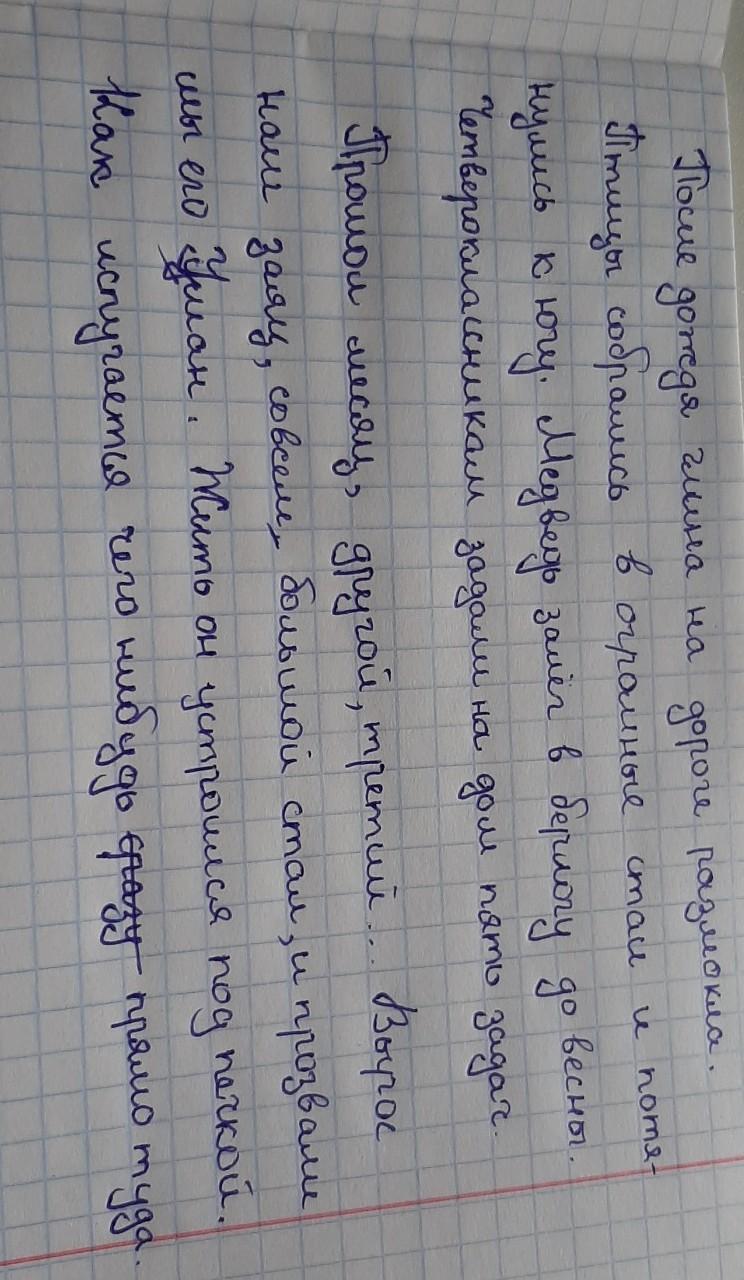 После дождя глина на дороге размокла.
Птицы собрались в огромные стаи и потя-
нулись к югу. Медведь залёг в берлогу до весны.
Четвероклассникам задали на дом пять задач.
Прошол месяц, другой, третий... Вырос
наш заяц, совсем, большой стал, и прозвали
мы его Уман. Жить он устроился под печкой.
Как испугается чего нибудь сразу прямо туда.